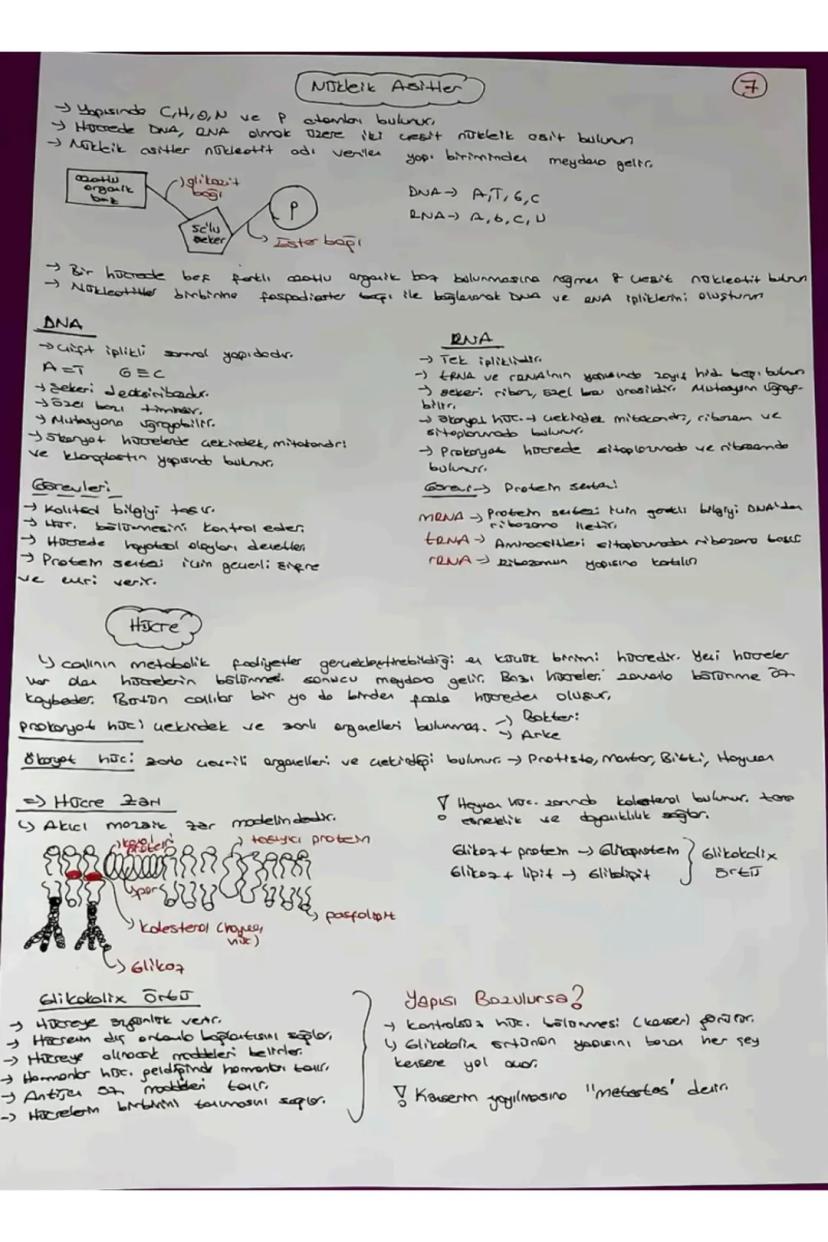 Nükleik Asitler
7
→ Yapısında C, H, O, N ve P atomları bulunur.
→ Hücrede DNA, RNA olmak üzere iki çeşit nükleik asit bulunur
→ Nükleik asitler nükleotit adı verilen yapı biriminden meydana gelir.
azotlu organik baz
glikozit bağı
5c'lu şeker
P
Ester bağı
DNA → A, T, G, C
RNA → A, G, C, U
→ Bir hücrede beş farklı azotlu organik baz bulunmasına rağmen 8 çeşit nükleotit bulunur
→ Nükleotitler birbirine fosfodiester bağı ile bağlanarak DNA ve RNA ipliklerini oluşturur
DNA
→ Çift iplikli sarmal yapıdadır.
A=T G≡C
→ Şekeri deoksiribozdur.
→ Özel bazı timindir.
→ Mutasyona uğrayabilir.
→ Ökaryot hücrelerde çekirdek, mitokondri
ve kloroplastın yapısında bulunur.
Görevleri
→ Kalıtsal bilgiyi taşır.
→ Hüc. bölünmesini kontrol eder.
→ Hücrede hayatsal olayları denetler.
→ Protein sentezi için gerekli şifre
ve emri verir.
RNA
→ Tek ipliklidir.
→ tRNA ve rRNA'nın yapısında zayıf hid. bağı bulunur
→ Şekeri riboz, özel bazı urasildir. Mutasyona uğraya-
bilir.
→ Ökaryot hüc. → çekirdek mitokondri, ribozom ve
sitoplazmada bulunur.
→ Prokaryot hücrede sitoplazmada ve ribozomda
bulunur.
Görevi → Protein sentezi
mRNA → Protein sentezi için gerekli bilgiyi DNA'dan
ribozoma iletir.
tRNA → Aminoasitleri sitoplazmadan ribozoma taşır
rRNA → Ribozomun yapısına katılır
Hücre
↳ canlının metabolik faaliyetler gerçekleştirebildiği en küçük birimi hücredir. Yeni hücreler
var olan hücrelerin bölünmesi sonucu meydana gelir. Bazı hücreler zamanla bölünme öz.
kaybeder. Bütün canlılar bir ya da birden fazla hücreden oluşur.
prokaryot hüc: çekirdek ve zarlı organelleri bulunmaz. → Bakteri
→ Arke
Ökaryot hüc: zarla çevrili organelleri ve çekirdeği bulunur. → Protista, Mantar, Bitki, Hayvan
⇒ Hücre Zarı
↳ Akıcı mozaik zar modelindedir.
protein
taşıyıcı protein
por
kolesterol (hayvan hüc)
fosfolipit
Glikoz
! Hayvan hüc. zarında kolesterol bulunur. zara
esneklik ve dayanıklılık sağlar.
Glikoz + protein → Glikoprotein
Glikoz + lipit → Glikolipit
Glikokaliks örtü
Glikokaliks Örtü
→ Hücreye özgünlük verir.
→ Hücrenin dış ortamla bağlantısını sağlar.
→ Hücreye alınacak maddeleri belirler.
→ Hormonlar hüc. geldiğinde hormonları tanır.
→ Antijen öz. maddeleri tanır.
→ Hücrelerin birbirini tanımasını sağlar.
Yapısı Bozulursa?
→ kontrolsüz hüc. bölünmesi (kanser) görülür.
↳ Glikokaliks örtünün yapısını bozan her şey
kansere yol açar.
! Kanserin yayılmasına "metastas" denir.